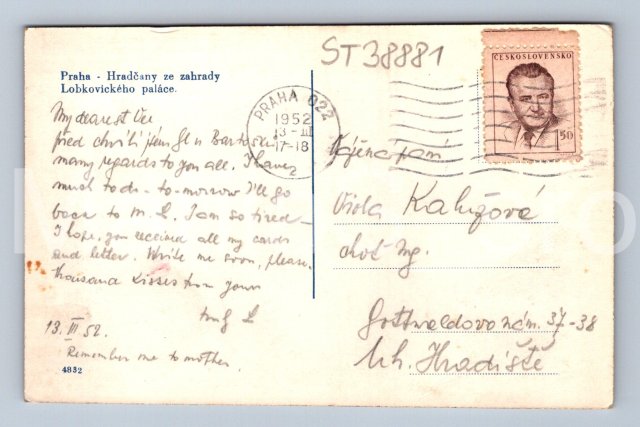 ST38881
Praha - Hradčany ze zahrady
Lobkovického paláce.
My dearest
před chvílí jsem šel u
many regards to you all. I have
much to do - to-morrow I'll go
back to M. L. I am so tired -
I hope, you received all my cards
and letter. Write me soon, please.
thousand kisses from your
L
13. III 52.
Remember me to mother.
4832
PRAHA 022
1952
13 - III
17-18
2
ČESKOSLOVENSKO
1,50
Vážená paní
Viola Kalužová
choť Ing.
Gottwaldovo nám. 37-38
Uh. Hradiště